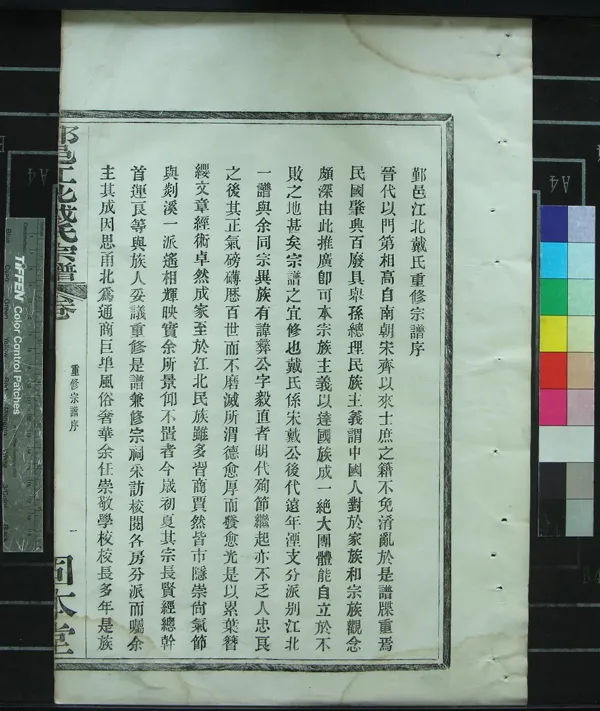 鄞邑江北戴氏重修宗譜序
晉代以門第相高自南朝宋齊以來士庶之籍不免淆亂於是譜牒重焉
民國肇興百廢具舉孫總理民族主義謂中國人對於家族和宗族觀念
頗深由此推廣卽可本宗族主義以達國族成一絕大團體能自立於不
敗之地甚矣宗譜之宜修也戴氏係宋戴公後代遠年湮支分派別江北
一譜與余同宗異族有諱彝公字毅直者明代殉節繼起亦不乏人忠良
之後其正氣磅礴歷百世而不磨滅所謂德愈厚而發愈光是以累葉簪
纓文章經術卓然成家至於江北民族雖多習商賈然皆市隱崇尚氣節
與剡溪一派遙相輝映實余所景仰不置者今歲初夏其宗長賢經總幹
首運良等與族人妥議重修是譜兼修宗祠采訪校閱各房分派而囑余
主其成因思甬北爲通商巨埠風俗奢華余任崇敬學校校長多年是族
鄞邑江北戴氏宗譜 卷
重修宗譜序
一
固本堂
TIFFEN Color Control Patches
Blue
A4
A4